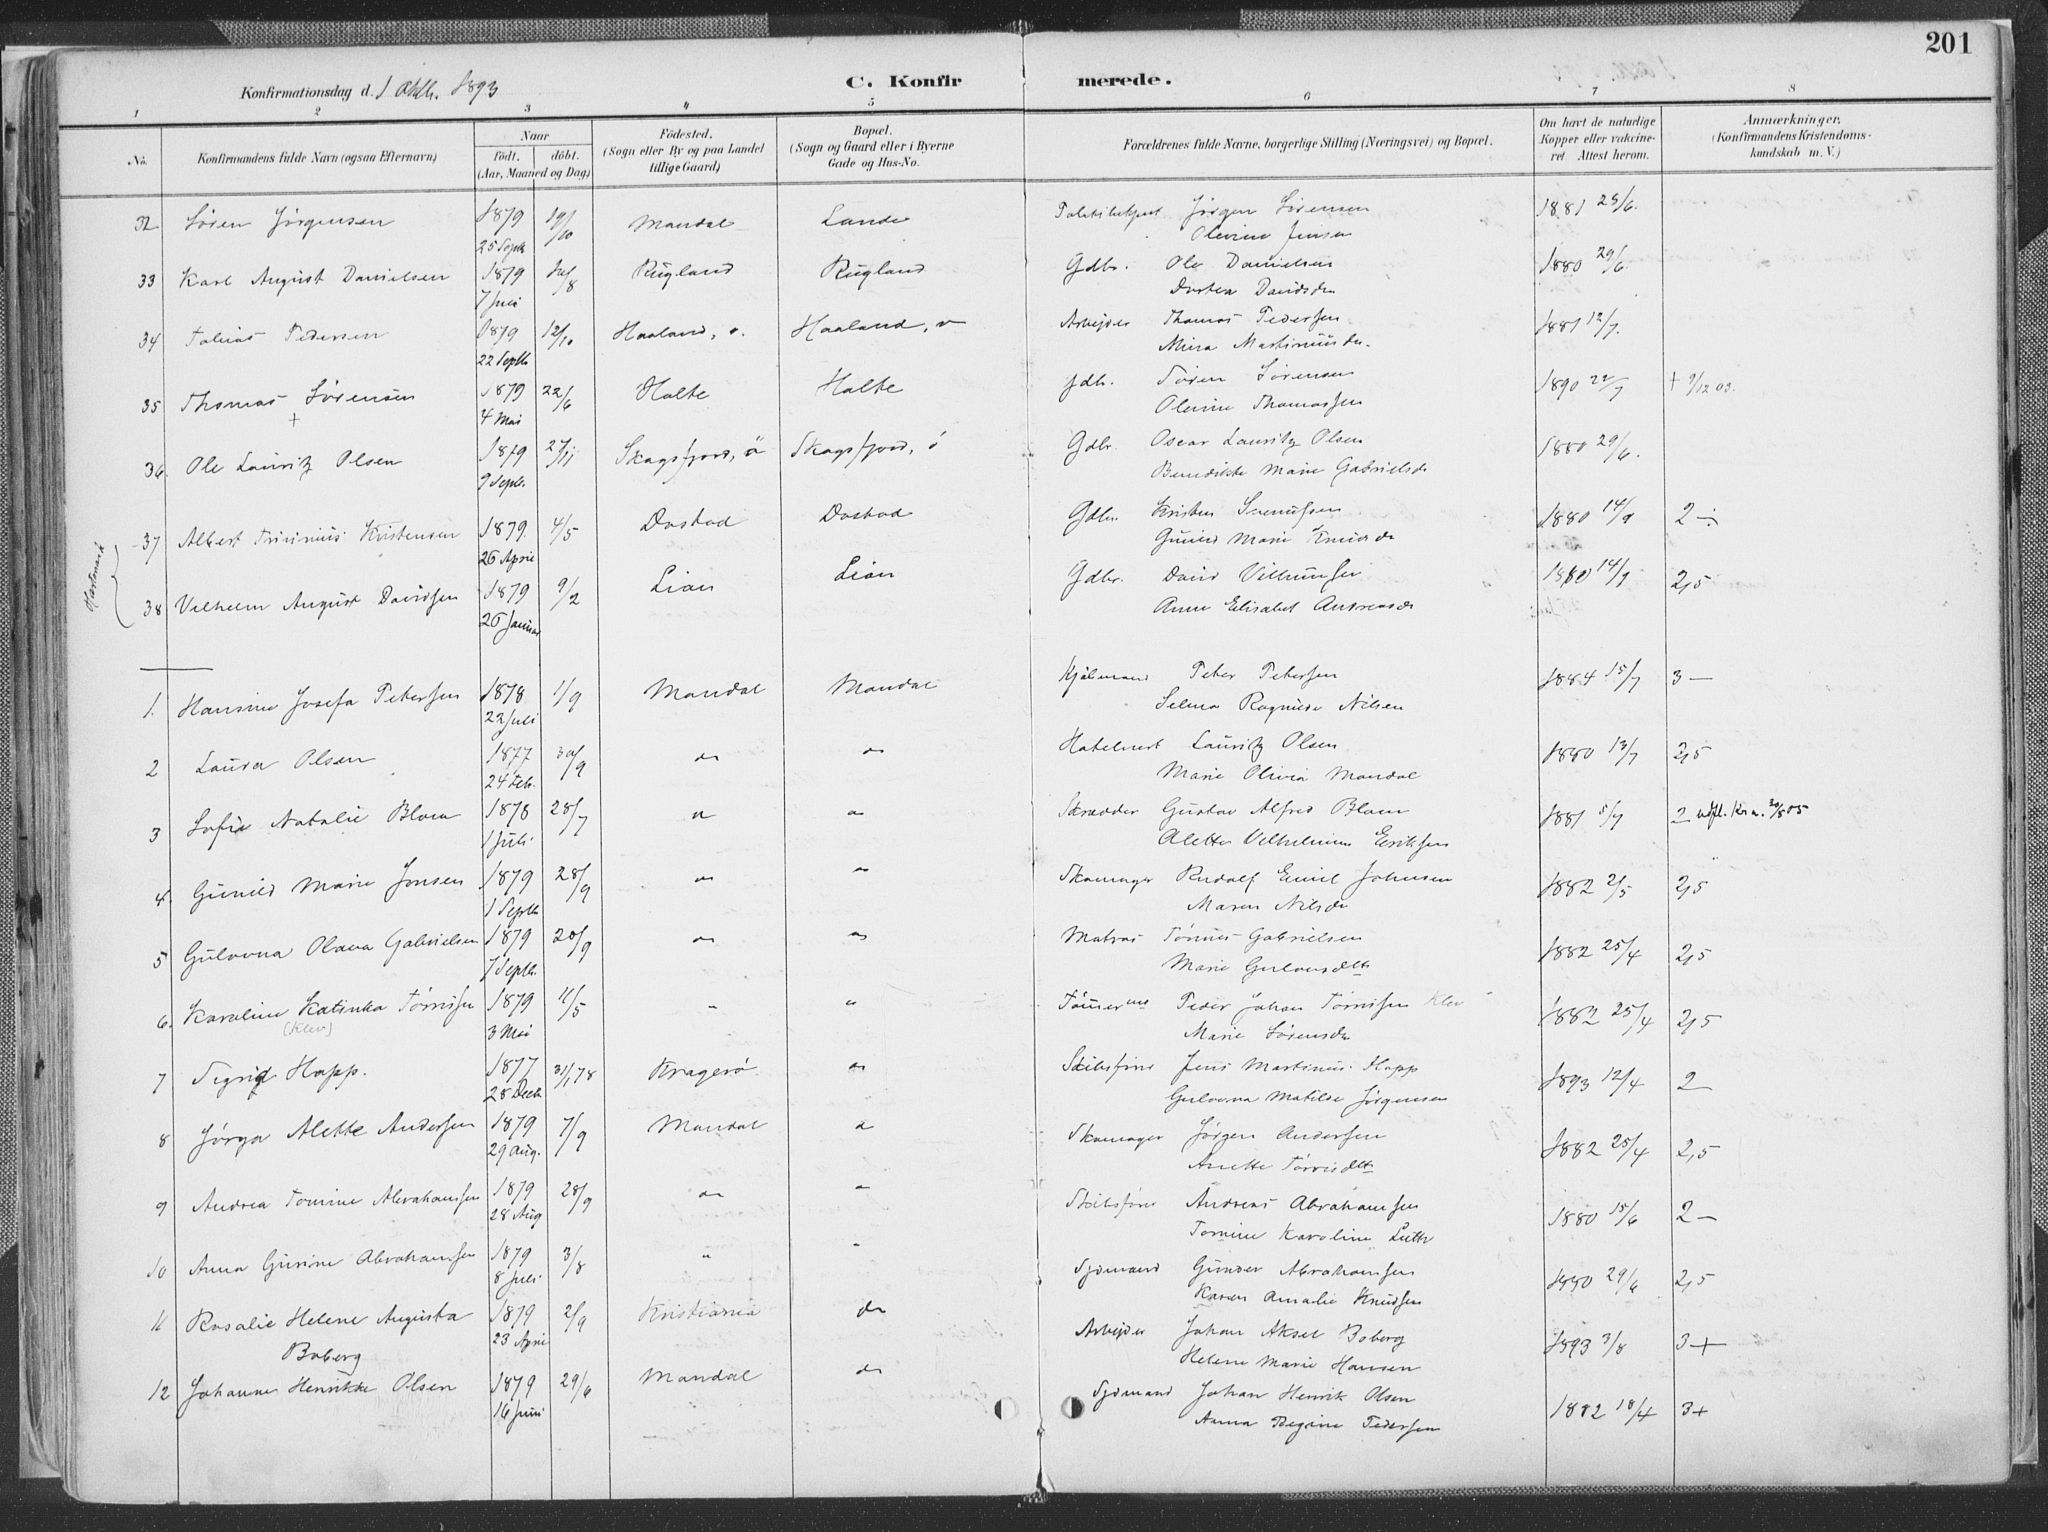 201
Konfirmationsdag d. 1 Oktb. 1893 C. Konfirmerede.
1 2 3 4 5 6 7 8
No. Konfirmandens fulde Navn (ogsaa Efternavn) Naar födt. döbt. (Aar, Maaned og Dag) Födested. (Sogn eller By og paa Landet tillige Gaard) Bopæl. (Sogn og Gaard eller i Byerne Gade og Hus-No. Forældrenes fulde Navne, borgerlige Stilling (Næringsvei) og Bopæl. Om havt de naturlige Kopper eller vakcineret Attest herom. Anmærkninger. (Konfirmandens Kristendomskundskab m. V.)
32 Sören Jörgensen 1879 19/10 Mandal Lande Jörgen Sörensen 1881 25/6.
25 Septb Olevine Jensen
33 Karl August Danielsen 1879 Rugland Rugland Gdbr. Ole Danielsen 1880 29/6.
7 Juli Dortea Davidsdr
34 Tobias Pedersen 1879 12/10 Haaland, v. Haaland, v Arbejder Thomas Pedersen 1881 12/7.
22 Septb Mina Martinusdr.
35 Thomas Sörensen 1879 22/6 Holte Holte Gdb. Sören Sörensen 1890 22/7 + 9/12 03.
+ 4 Mai Olevine Thomassen
36. Ole Lauritz Olsen 1879 27/11 Skagsfjord, ö Skogsfjord, ö Gdbr. Oscar Lauritz Olsen 1880 29/6.
9 Septb. Benedikte Marie Gabrielsdr
37 Albert Kristensen 1879. 4/5 Dastad Dastad Gdbr. Kristen 1880 14/9 2 ÷
26 April Gunild Marie Knudsdr
Hartmark
38 Vilhelm August Davidsen 1879 9/2 Lian Lian Gdbr. David 1880 14/9 2,5
26 Januar Anne Elisabet Andreasdr
1. Hansine Josefa Petersen 1878 1/9 Mandal Mandal Peter Petersen 1884 15/7 3 —
22 Juli Selma Ragnilde Nilsen
2 Laura Olsen 1877 30/9 do do Lauritz Olsen 1880 13/7 2,5
24 Feb. Marie Olivia Mandal
3 Sofie Natalie Blom 1878 28/7 do do Skrædder Gustav Alfred Blom 1881 5/7 2 udfl. Kr.a. 30/8 05
1 Juli Alette Vilhelmine Eriksen
4. Gunild Marie Jonsen 1879 28/9 do do Skomager Rudolf Emil Johnsen 1882 2/5 2,5
1 Septb Maren Nilsdr
5 Gulovna Olava Gabrielsen 1879 28/9 do do Matros Tönnes Gabrielsen 1882 25/4 2,5
7 Septb. Marie Gulovsdtr
6. Karoline Katinka Törrissen 1879 11/5 " " Tömmerm. Peder Johan Törrissen Klev 1882 25/4 2,5
(Klev) 3 Mai Marie Sörensdr
7 Sigrid Happ. 1877 31/1 78 Kragerö do Skibsförer Jens Martinus Happ 1893 12/4 2
28 Decb Gulovna Matilde Jörgensen
8 Jörga Alette Andersen 1879 7/9 Mandal do Skomager Jörgen Andersen 1882 25/4 2,5
29 Aug. Anette Törrisdtr
9 Andrea Tomine Abrahamsen 1879 28/9 do do Skibsförer Andreas Abrahamsen 1880 15/6 2 —
28 Aug Tomine Karoline Luth
10 Anna Gurine Abrahamsen 1879 3/8 " " Sjömand Gunder Abrahamsen 1880 29/6 2,5
8 Juli Karen Amalie Knudsen
11 Rosalie Helene Augusta 1879 2/9 Kristiania do Arbejder Johan Aksel Boberg 1893 3/8 3 +
Boberg 23 April Helene Marie Hansen
12 Johanne Henrikke Olsen 1879 29/6 Mandal do Sjömand Johan Henrik Olsen 1882 18/4 3 +
16 Juni Anna Regine Pedersen